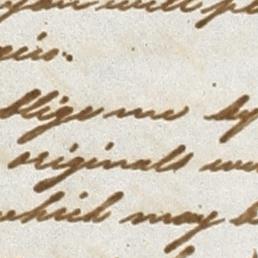 you will pl
blige me by
originals we
which may b